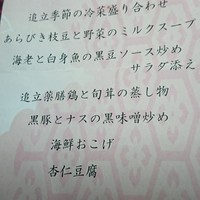 追立季節の冷菜盛り合わせ
あらびき枝豆と野菜のミルクスープ
海老と白身魚の黒豆ソース炒め
サラダ添え
追立薬膳鶏と旬茸の蒸し物
黒豚とナスの黒味噌炒め
海鮮おこげ
杏仁豆腐